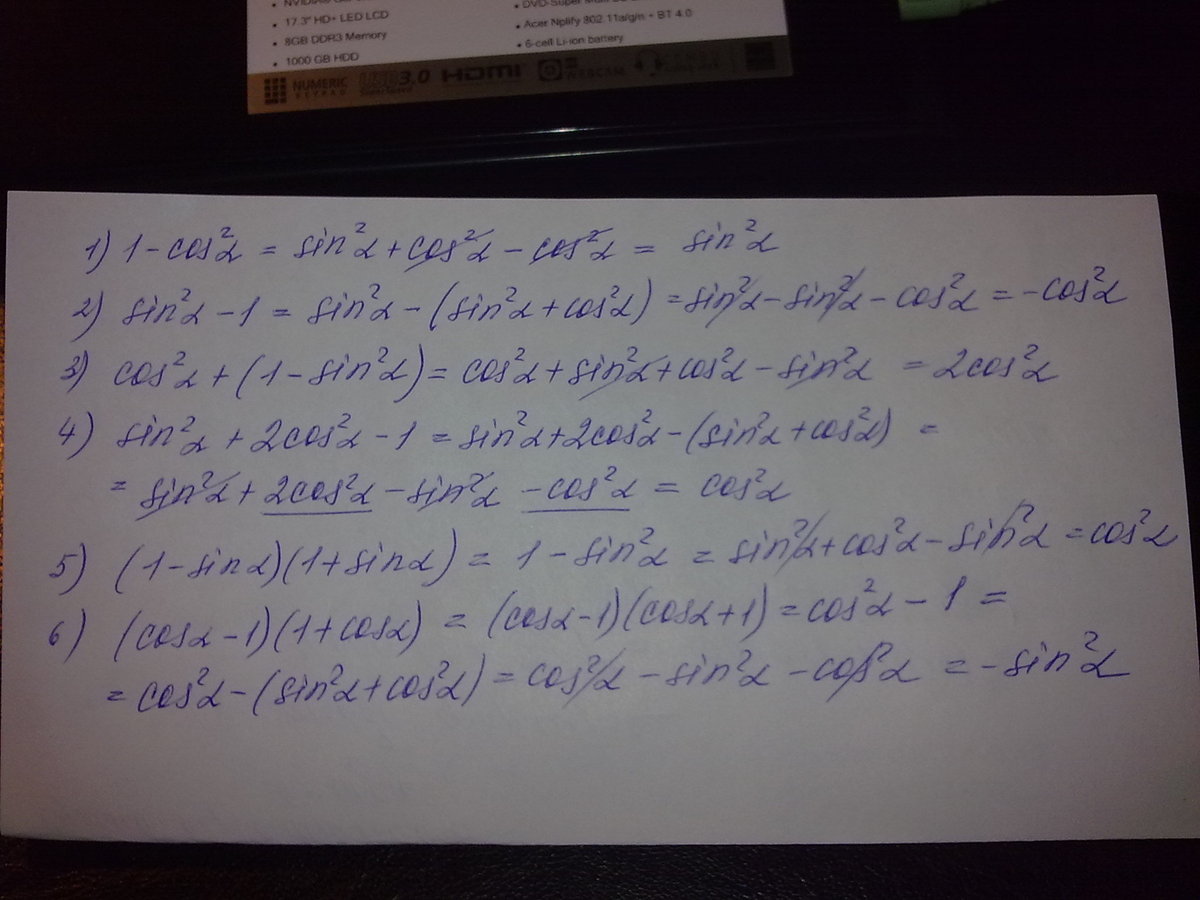 • 17.3" HD+ LED LCD
• 8GB DDR3 Memory
• 1000 GB HDD
• Acer Nplify 802.11a/g/n + BT 4.0
• 6-cell Li-ion battery
NUMERIC KEYPAD 3.0 SuperSpeed HDMI WEBCAM
1) 1 - cos²α = sin²α + cos²α - cos²α = sin²α
2) sin²α - 1 = sin²α - (sin²α + cos²α) = sin²α - sin²α - cos²α = -cos²α
3) cos²α + (1 - sin²α) = cos²α + sin²α + cos²α - sin²α = 2cos²α
4) sin²α + 2cos²α - 1 = sin²α + 2cos²α - (sin²α + cos²α) =
= sin²α + 2cos²α - sin²α - cos²α = cos²α
5) (1 - sinα)(1 + sinα) = 1 - sin²α = sin²α + cos²α - sin²α = cos²α
6) (cosα - 1)(1 + cosα) = (cosα - 1)(cosα + 1) = cos²α - 1 =
= cos²α - (sin²α + cos²α) = cos²α - sin²α - cos²α = -sin²α